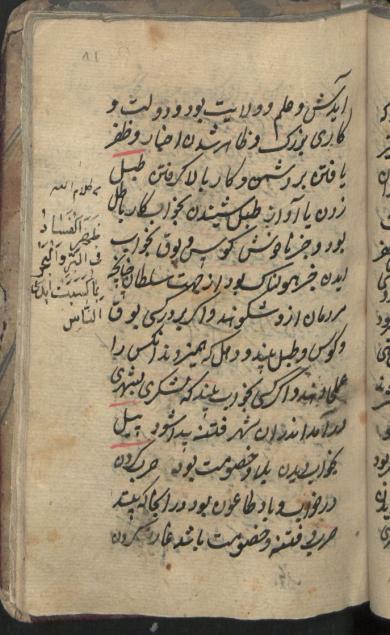 ۸۱
آیدکش و علم و ولایت بود و دولت و
کاری بزرگ و ظاهر شدن اخبار و ظفر
یافتن بر دشمن و کار بالا گرفتن طبل
زدن یا آواز طبل شنیدن بخواب کار باطل
بود و خبر ناخوش کوس و بوق بخواب
دیدن خبر هولناک بود از جهت سلطان چنانچه
مردمان از و شکوهند و اگر بیند کسی بوق
و کوس و طبل بیند و دهل که همیزدند آنکس را
عملی دهند و اگر کسی بخواب بیند که لشکری بشهری
در آمد اندر آن شهر فتنه پیدا شود پیل
بخواب دیدن بلا و خصومت بود حرب کردن
در خواب وبا و طاعون بود در آنجا که بیند
حربی فتنه و خصومت باشد غارت کردن
کلام الله
ظَهَرَ الْفَسَادُ
فِی الْبَرِّ وَالْبَحْرِ
بِمَا کَسَبَتْ اَیْدِی
النَّاسِ